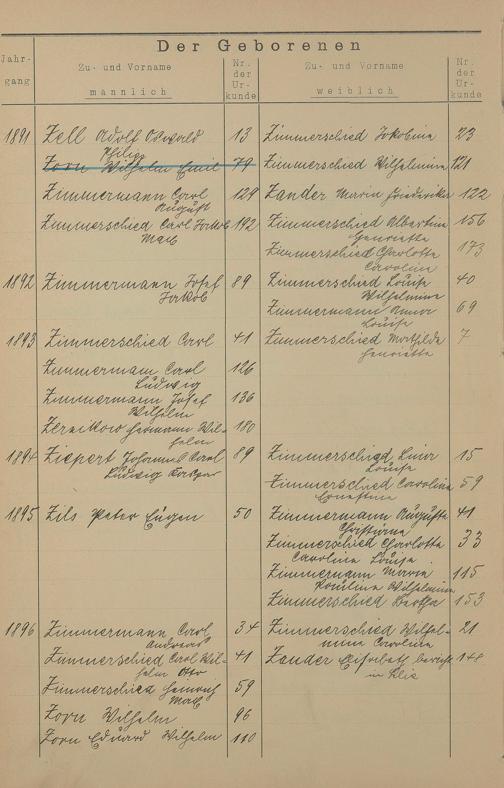 Der Geborenen
Jahr-
gang
Zu- und Vorname
männlich
Nr.
der
Ur-
kunde
Zu- und Vorname
weiblich
Nr.
der
Ur-
kunde
1891 Zell Adolf Oswald 13 Zimmerschied Jakobine 23
Philipp
Zorn Wilhelm Emil 79 Zimmerschied Wilhelmine 121
Zimmermann Carl 129 Zander Maria Friederika 122
August
Zimmerschied Carl Jakob 192 Zimmerschied Albertine 156
Max Henriette
Zimmerschied Charlotte 173
Caroline
1892 Zimmermann Josef 89 Zimmerschied Louise 40
Jakob Wilhelmine
Zimmermann Anna 69
Louise
1893 Zimmerschied Carl 41 Zimmerschied Mathilde 7
Henriette
Zimmermann Carl 126
Ludwig
Zimmermann Josef 136
Wilhelm
Hermann Wil- 180
helm
1894 Ziepert Johannes Carl 89 Zimmerschied Lina 15
Ludwig Kaspar Louise
Zimmerschied Caroline 59
Ernestine
1895 Zils Peter Eugen 50 Zimmermann Auguste 41
Christiane
Zimmerschied Charlotte 33
Caroline Louise
Zimmermann Maria 115
Pauline Wilhelmine
Zimmerschied Bertha 153
1896 Zimmermann Carl 34 Zimmerschied Wilhel- 21
Andreas mine Caroline
Zimmerschied Carl Wil- 41 Zander Elisabeth
helm Otto
Zimmerschied Heinrich 59
Max
Zorn Wilhelm 96
Zorn Eduard Wilhelm 110